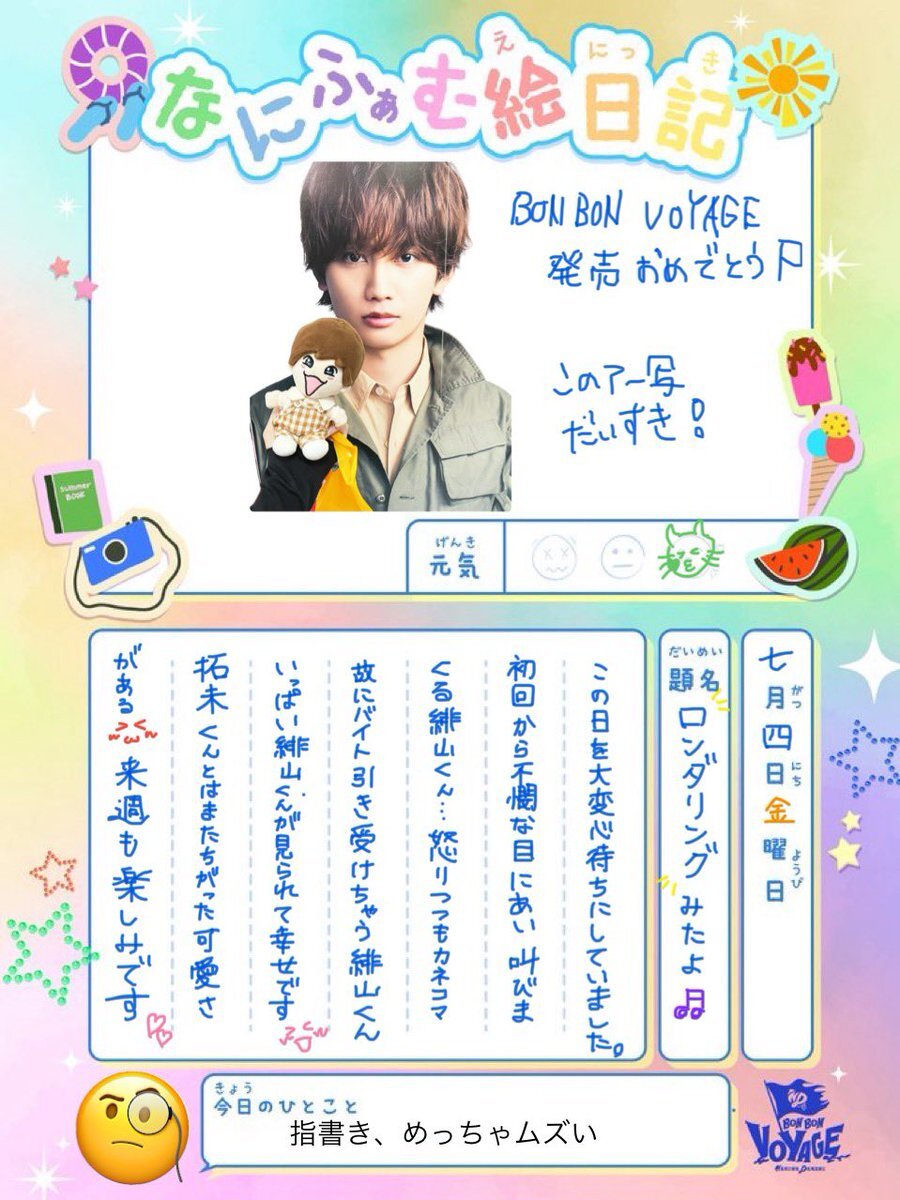 なにふぁむ絵日記
え
にっ
き
BON BON VOYAGE
発売おめでとう
このアー写
だいすき!
Summer
BOOK
げんき
元気
七月四日金曜日
がつ
にち
ようび
だいめい
題名
ロンダリングみたよ♫
この日を大変心待ちにしていました。
初回から不憫な目にあい叫びま
くる緋山くん…怒りつつもカネコマ
故にバイト引き受けちゃう緋山くん
いっぱい緋山くんが見られて幸せです
拓未くんとはまたちがった可愛さ
がある 来週も楽しみです
きょう
今日のひとこと
指書き、めっちゃムズい
BON BON
VOYAGE
NANIWA DANSHI